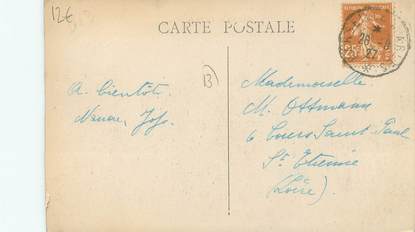 12€
CARTE POSTALE
25
28
27
13
A bientôt
Mademoiselle
M. Ottmann
6 Cours Saint Paul
St Etienne
(Loire).